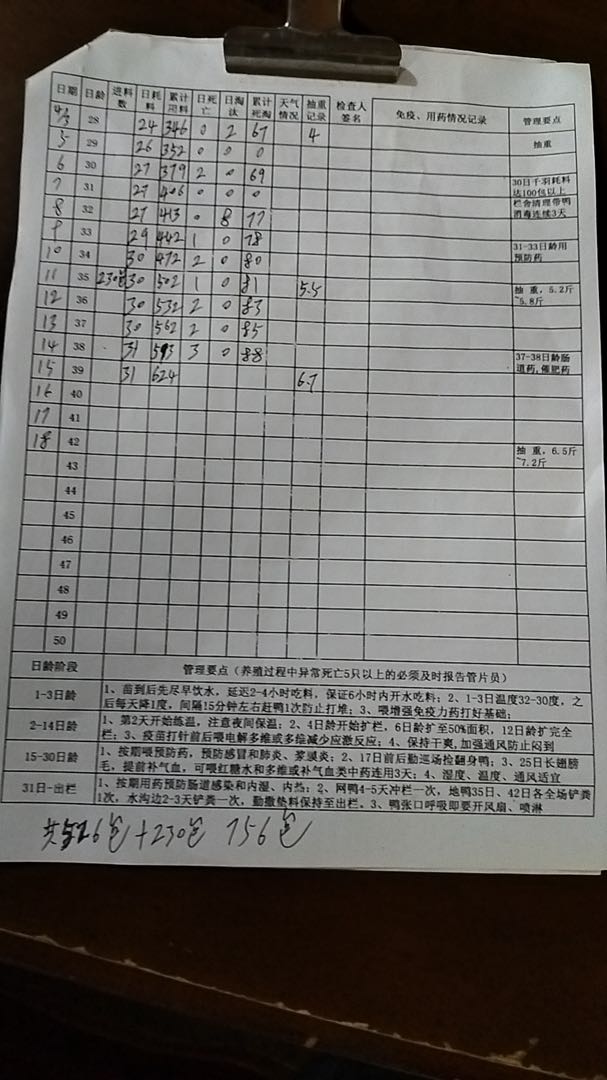 日期 日龄 进料数 日耗料 累计用料 日死亡 日淘汰 累计死淘 天气情况 抽重记录 检查人签名 免疫、用药情况记录 管理要点
4/3 28 24 346 0 2 67 4
5 29 26 352 0 0 0 抽重
6 30 27 379 2 0 69
7 31 27 406 0 0 0 30日千羽耗料达100包以上
8 32 27 413 0 8 77 栏舍清理带鸭消毒连续3天
9 33 29 442 1 0 78
10 34 30 472 2 0 80 31-33日龄用预防药
11 35 230包 30 502 1 0 81 5.5
12 36 30 532 2 0 83 抽重，5.2斤~5.8斤
13 37 30 562 2 0 85
14 38 31 593 3 0 88
15 39 31 624 6.7 37-38日龄肠道药,催肥药
16 40
17 41
18 42
43 抽重，6.5斤~7.2斤
44
45
46
47
48
49
50
日龄阶段 管理要点（养殖过程中异常死亡5只以上的必须及时报告管片员）
1-3日龄 1、苗到后先尽早饮水，延迟2-4小时吃料，保证6小时内开水吃料；2、1-3日温度32-30度，之
后每天降1度，间隔15分钟左右赶鸭1次防止打堆；3、喂增强免疫力药打好基础；
2-14日龄 1、第2天开始练温，注意夜间保温；2、4日龄开始扩栏，6日龄扩至50%面积，12日龄扩完全
栏；3、疫苗打针前后喂电解多维或多维减少应激反应；4、保持干爽,加强通风防止闷到
15-30日龄 1、按期喂预防药，预防感冒和肺炎、浆膜炎；2、17日前后勤巡场捡翻身鸭；3、25日长翅膀
毛，提前补气血，可喂红糖水和多维或补气血类中药连用3天；4、湿度、温度、通风适宜
31日-出栏 1、按期用药预防肠道感染和内湿、内热；2、网鸭4-5天冲栏一次，地鸭35日、42日各全场铲粪
1次，水沟边2-3天铲粪一次，勤撒垫料保持至出栏。3、鸭张口呼吸即要开风扇、喷淋
共526包+230包 756包